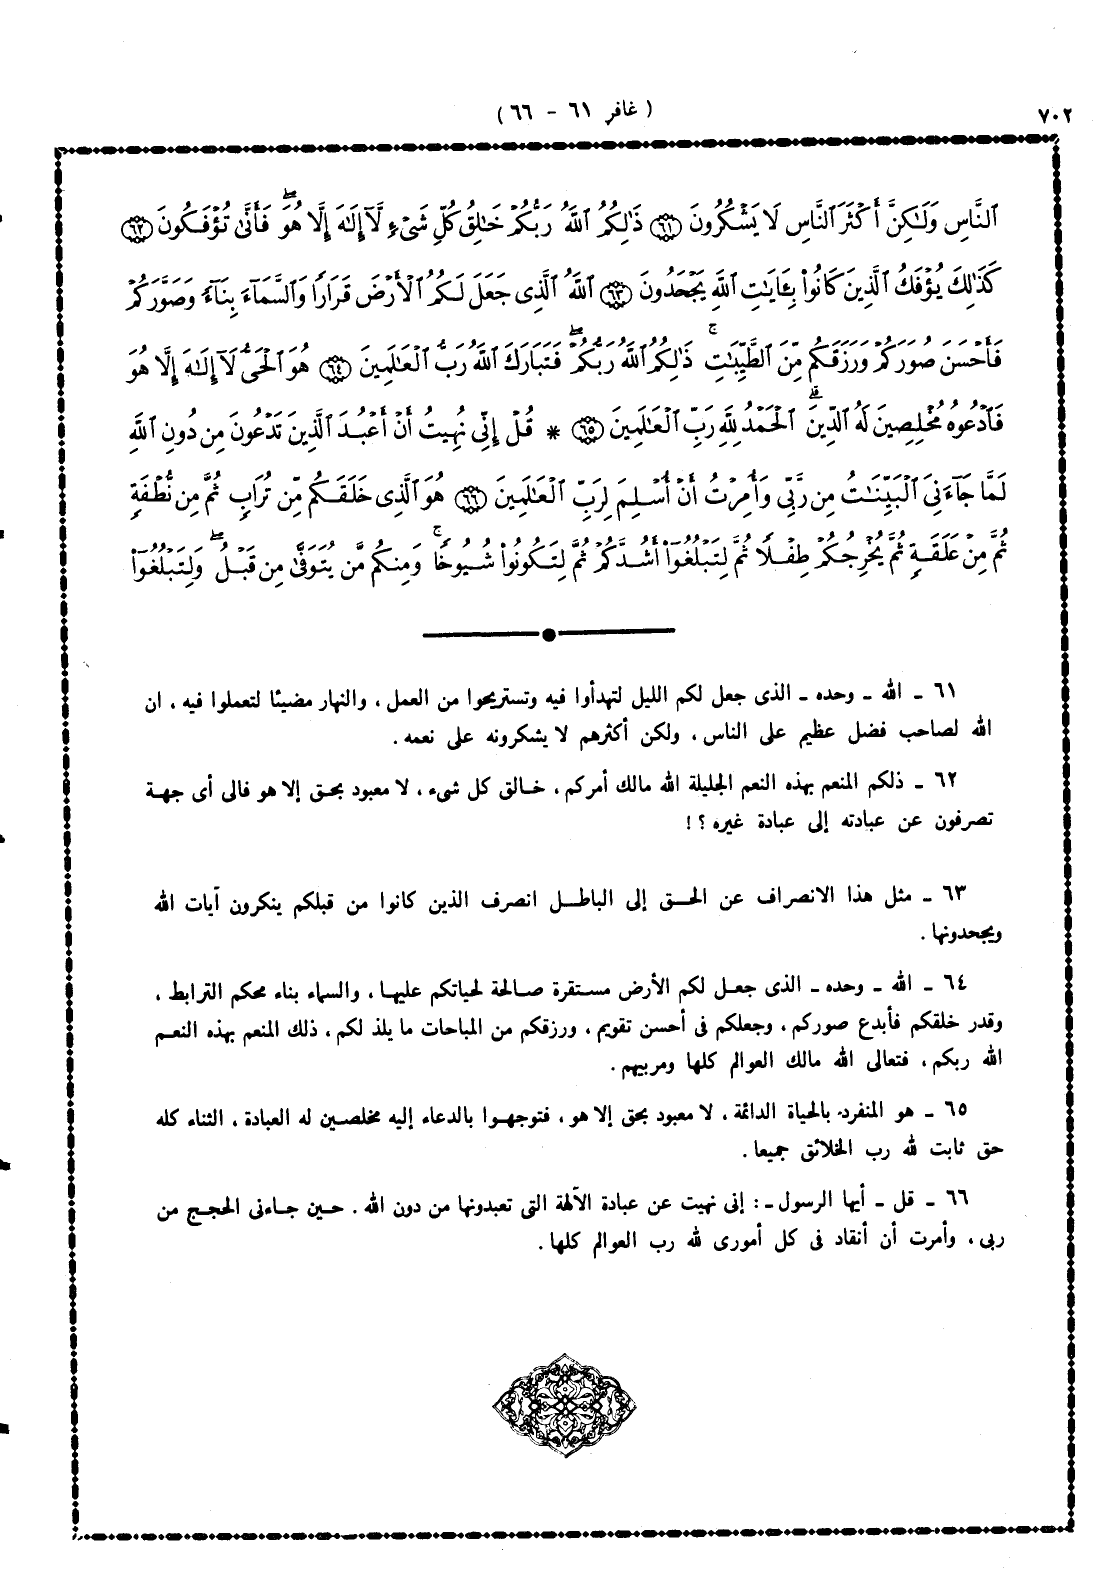 ٧٠٢
( غافر ٦١ - ٦٦ )
ٱلنَّاسِ وَلَٰكِنَّ أَكْثَرَ ٱلنَّاسِ لَا يَشْكُرُونَ ٦١ ذَٰلِكُمُ ٱللَّهُ رَبُّكُمْ خَٰلِقُ كُلِّ شَىْءٍ لَّآ إِلَٰهَ إِلَّا هُوَ ۖ فَأَنَّىٰ تُؤْفَكُونَ ٦٢
كَذَٰلِكَ يُؤْفَكُ ٱلَّذِينَ كَانُوا۟ بِـَٔايَٰتِ ٱللَّهِ يَجْحَدُونَ ٦٣ ٱللَّهُ ٱلَّذِى جَعَلَ لَكُمُ ٱلْأَرْضَ قَرَارًا وَٱلسَّمَآءَ بِنَآءً وَصَوَّرَكُمْ
فَأَحْسَنَ صُوَرَكُمْ وَرَزَقَكُم مِّنَ ٱلطَّيِّبَٰتِ ۚ ذَٰلِكُمُ ٱللَّهُ رَبُّكُمْ ۖ فَتَبَارَكَ ٱللَّهُ رَبُّ ٱلْعَٰلَمِينَ ٦٤ هُوَ ٱلْحَىُّ لَآ إِلَٰهَ إِلَّا هُوَ
فَٱدْعُوهُ مُخْلِصِينَ لَهُ ٱلدِّينَ ۗ ٱلْحَمْدُ لِلَّهِ رَبِّ ٱلْعَٰلَمِينَ ٦٥ * قُلْ إِنِّى نُهِيتُ أَنْ أَعْبُدَ ٱلَّذِينَ تَدْعُونَ مِن دُونِ ٱللَّهِ
لَمَّا جَآءَنِىَ ٱلْبَيِّنَٰتُ مِن رَّبِّى وَأُمِرْتُ أَنْ أُسْلِمَ لِرَبِّ ٱلْعَٰلَمِينَ ٦٦ هُوَ ٱلَّذِى خَلَقَكُم مِّن تُرَابٍ ثُمَّ مِن نُّطْفَةٍ
ثُمَّ مِنْ عَلَقَةٍ ثُمَّ يُخْرِجُكُمْ طِفْلًا ثُمَّ لِتَبْلُغُوٓا۟ أَشُدَّكُمْ ثُمَّ لِتَكُونُوا۟ شُيُوخًا ۚ وَمِنكُم مَّن يُتَوَفَّىٰ مِن قَبْلُ ۖ وَلِتَبْلُغُوٓا۟
٦١ - الله - وحده - الذى جعل لكم الليل لتهدأوا فيه وتستريحوا من العمل ، والنهار مضيئا لتعملوا فيه ، ان
الله لصاحب فضل عظيم على الناس ، ولكن أكثرهم لا يشكرونه على نعمه .
٦٢ - ذلكم المنعم بهذه النعم الجليلة الله مالك أمركم ، خالق كل شىء ، لا معبود بحق إلا هو فالى أى جهة
تصرفون عن عبادته إلى عبادة غيره ؟ !
٦٣ - مثل هذا الانصراف عن الحق إلى الباطل انصرف الذين كانوا من قبلكم ينكرون آيات الله
ويجحدونها .
٦٤ - الله - وحده - الذى جعل لكم الأرض مستقرة صالحة لحياتكم عليها ، والسماء بناء محكم الترابط ،
وقدر خلقكم فأبدع صوركم ، وجعلكم فى أحسن تقويم ، ورزقكم من المباحات ما يلذ لكم ، ذلك المنعم بهذه النعم
الله ربكم ، فتعالى الله مالك العوالم كلها ومربيهم .
٦٥ - هو المنفرد بالحياة الدائمة ، لا معبود بحق إلا هو ، فتوجهوا بالدعاء إليه مخلصين له العبادة ، الثناء كله
حق ثابت لله رب الخلائق جميعا .
٦٦ - قل - أيها الرسول - : إنى نهيت عن عبادة الآلهة التى تعبدونها من دون الله . حين جاءنى الحجج من
ربى ، وأمرت أن أنقاد فى كل أمورى لله رب العوالم كلها .